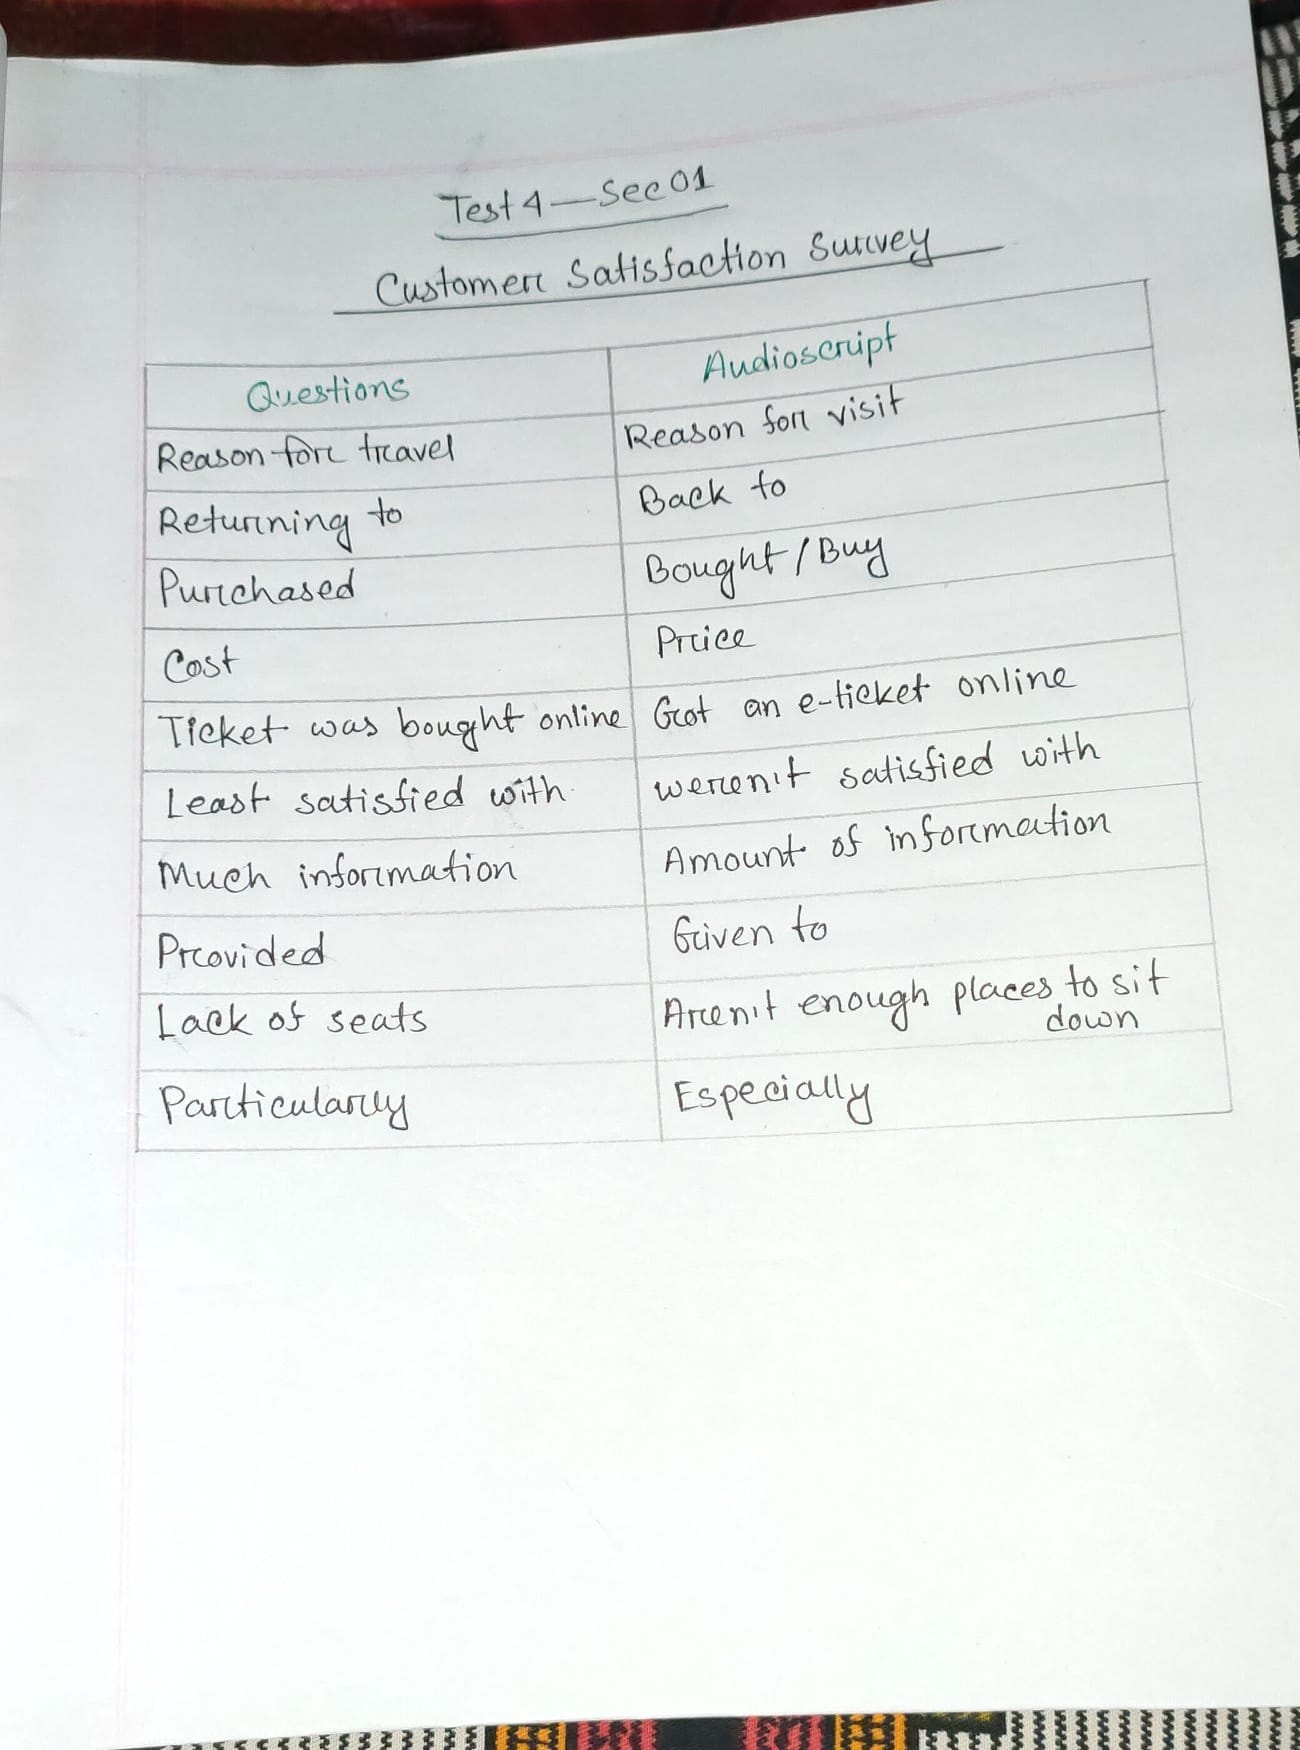 Test 4 — Sec 01
Customer Satisfaction Survey
Questions Audioscript
Reason for travel Reason for visit
Returning to Back to
Purchased Bought / Buy
Cost Price
Ticket was bought online Got an e-ticket online
Least satisfied with weren't satisfied with
Much information Amount of information
Provided Given to
Lack of seats Aren't enough places to sit
down
Particularly Especially